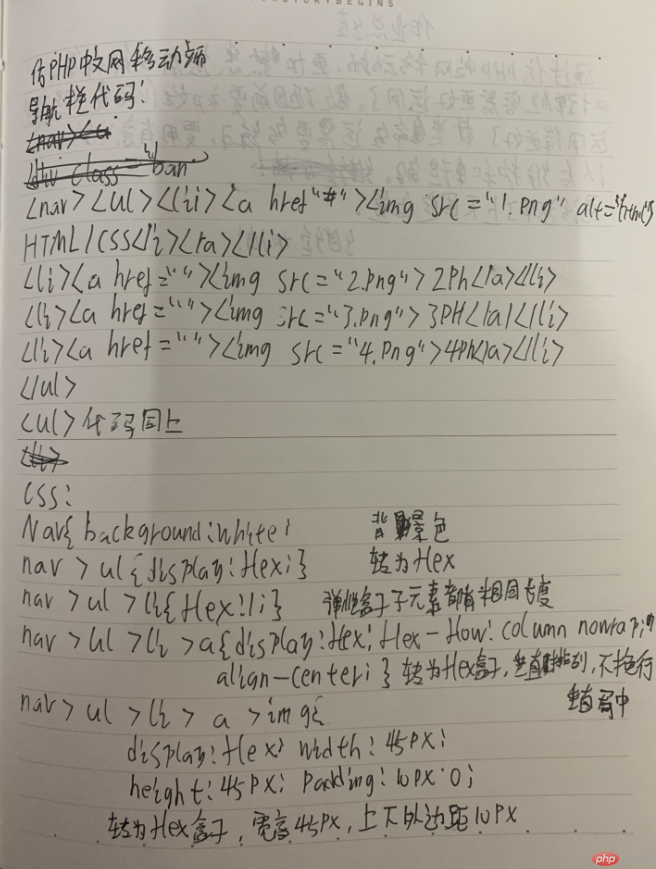 仿PHP中文网移动端
导航栏代码:
<nav><ul><li><a href="#"><img src="1.png" alt="html">
HTML/CSS</i></a></li>
<li><a href=""><img src="2.png">2Ph</a></li>
<li><a href=""><img src="3.png">3PH</a></li>
<li><a href=""><img src="4.png">4Ph</a></li>
</ul>
<ul>代码同上
CSS:
Nav{background:white; 背景色
nav>ul{display:flex;} 转为flex
nav>ul>li{flex:1;} 弹性盒子子元素都有相同长度
nav>ul>li>a{display:flex; flex-flow:column nowrap;
align-center;} 转为flex盒子,垂直排列,不换行
垂直居中
nav>ul>li>a>img{
display:flex; width:45px;
height:45px; padding:10px 0;
转为flex盒子,宽高45px,上下外边距10px
php